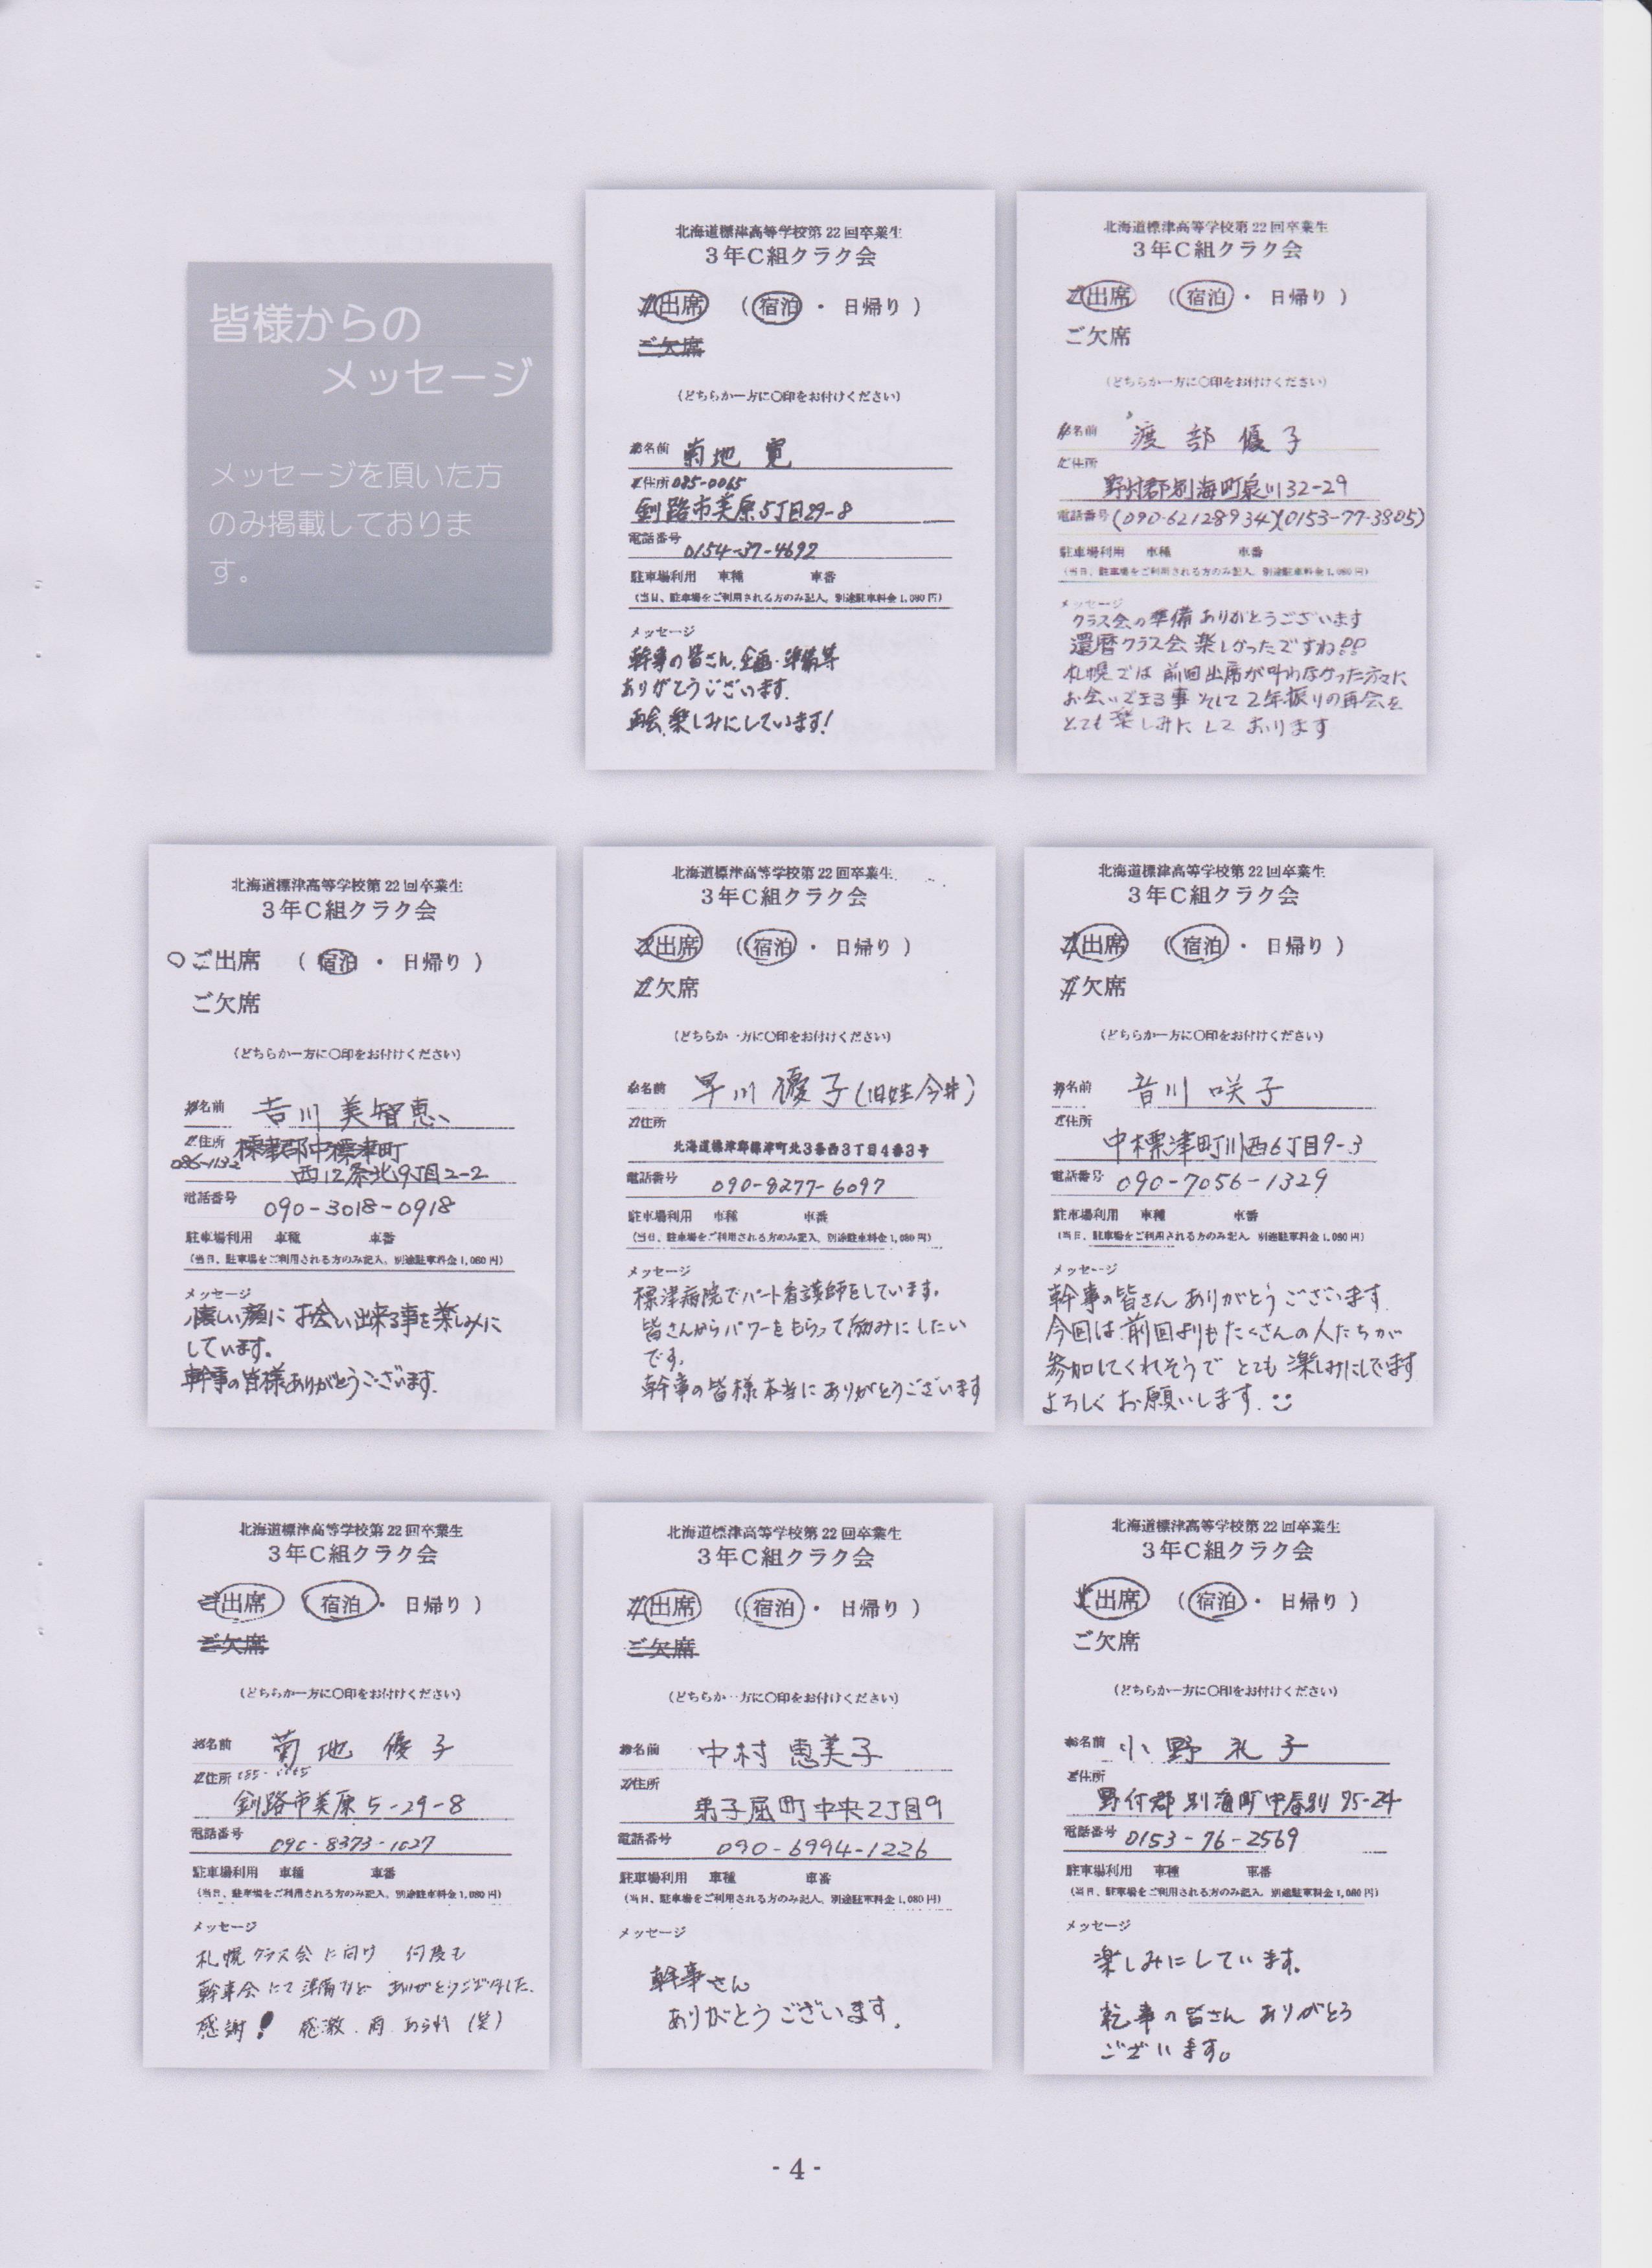 皆様からの
メッセージ
メッセージを頂いた方
のみ掲載しておりま
す。
北海道標津高等学校第22回卒業生
3年C組クラク会
ご出席 (宿泊・日帰り)
ご欠席
(どちらか一方に○印をお付けください)
お名前 菊地 寛
ご住所 085-0065
釧路市美原5丁目29-8
電話番号 0154-37-4692
駐車場利用 車種 車番
(当日、駐車場をご利用される方のみ記入。別途駐車料金1,080円)
メッセージ
幹事の皆さん、企画・準備等
ありがとうございます。
再会、楽しみにしています!
北海道標津高等学校第22回卒業生
3年C組クラク会
ご出席 (宿泊・日帰り)
ご欠席
(どちらか一方に○印をお付けください)
お名前 渡部 優子
ご住所
野付郡別海町泉川32-29
電話番号 (090-62128934)(0153-77-3805)
駐車場利用 車種 車番
(当日、駐車場をご利用される方のみ記入。別途駐車料金1,080円)
メッセージ
クラス会の準備ありがとうございます
還暦クラス会楽しかったですね!!
札幌では前回出席が叶わなかった方々に
お会いできる事そして2年振りの再会を
とても楽しみにしております
北海道標津高等学校第22回卒業生
3年C組クラク会
○ご出席 (宿泊・日帰り)
ご欠席
(どちらか一方に○印をお付けください)
お名前 吉川 美智恵
ご住所 標津郡中標津町
086-1132 西12条北9丁目2-2
電話番号 090-3018-0918
駐車場利用 車種 車番
(当日、駐車場をご利用される方のみ記入。別途駐車料金1,080円)
メッセージ
懐しい顔にお会い出来る事を楽しみに
しています。
幹事の皆様ありがとうございます。
北海道標津高等学校第22回卒業生
3年C組クラク会
ご出席 (宿泊・日帰り)
ご欠席
(どちらか一方に○印をお付けください)
お名前 早川 優子(旧姓今井)
ご住所
北海道標津郡標津町北3条西3丁目4番3号
電話番号 090-8277-6097
駐車場利用 車種 車番
(当日、駐車場をご利用される方のみ記入。別途駐車料金1,080円)
メッセージ
標津病院でパート看護師をしています。
皆さんからパワーをもらって励みにしたい
です。
幹事の皆様本当にありがとうございます
北海道標津高等学校第22回卒業生
3年C組クラク会
ご出席 (宿泊・日帰り)
ご欠席
(どちらか一方に○印をお付けください)
お名前 音川 咲子
ご住所
中標津町川西6丁目9-3
電話番号 090-7056-1329
駐車場利用 車種 車番
(当日、駐車場をご利用される方のみ記入。別途駐車料金1,080円)
メッセージ
幹事の皆さんありがとうございます。
今回は前回よりもたくさんの人たちが
参加してくれそうでとても楽しみにしてます
よろしくお願いします。
北海道標津高等学校第22回卒業生
3年C組クラク会
ご出席 (宿泊・日帰り)
ご欠席
(どちらか一方に○印をお付けください)
お名前 菊地 優子
ご住所 085-0065
釧路市美原5-29-8
電話番号 090-8373-1027
駐車場利用 車種 車番
(当日、駐車場をご利用される方のみ記入。別途駐車料金1,080円)
メッセージ
札幌クラス会に向け 何度も
幹事会にて準備など ありがとうございました。
感謝! 感激.雨.あられ(笑)
北海道標津高等学校第22回卒業生
3年C組クラク会
ご出席 (宿泊・日帰り)
ご欠席
(どちらか一方に○印をお付けください)
お名前 中村 恵美子
ご住所
弟子屈町中央2丁目9
電話番号 090-6994-1226
駐車場利用 車種 車番
(当日、駐車場をご利用される方のみ記入。別途駐車料金1,080円)
メッセージ
幹事さん
ありがとうございます。
北海道標津高等学校第22回卒業生
3年C組クラク会
ご出席 (宿泊・日帰り)
ご欠席
(どちらか一方に○印をお付けください)
お名前 小野 礼子
ご住所
野付郡別海町中春別95-24
電話番号 0153-76-2569
駐車場利用 車種 車番
(当日、駐車場をご利用される方のみ記入。別途駐車料金1,080円)
メッセージ
楽しみにしています。
幹事の皆さん ありがとう
ございます。
- 4 -